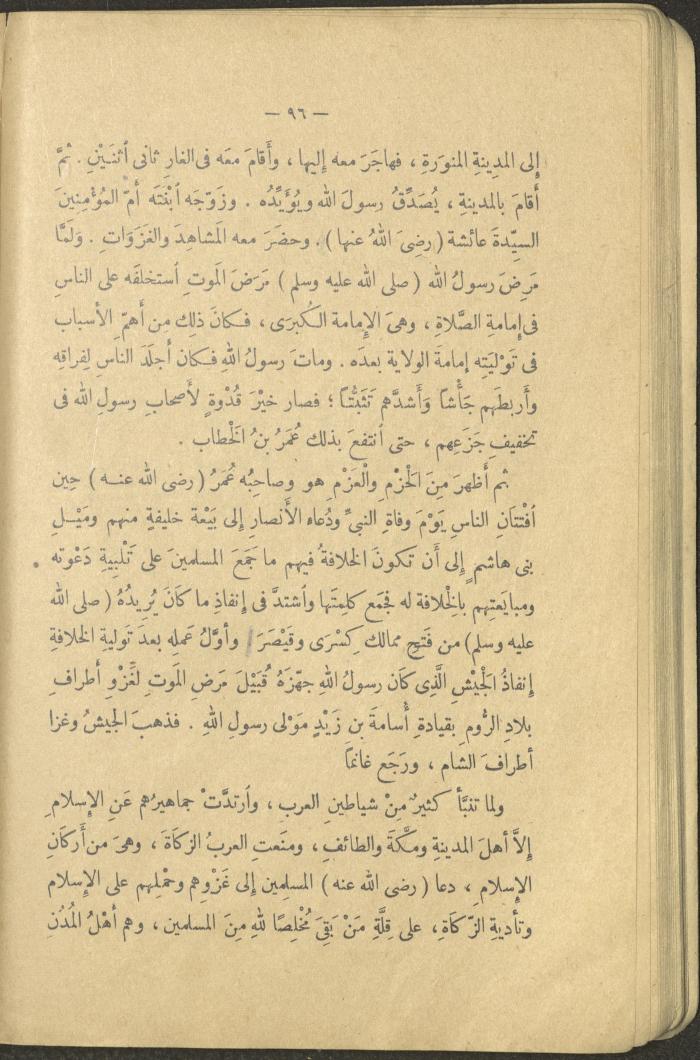 — ٩٦ —
إلى المدِينةِ المنوَرةِ ، فهاجَرَ معه إليها ، وأَقامَ معَه فى الغارِ ثانى ٱثنَـيْنِ . ثمَّ
أَقامَ بالمدينةِ ، يُصَدِّقُ رسولَ الله ويُؤَيِّدُه . وزَوّجَه ٱبْنَتَه أمّ المُؤْمِنِينَ
السيّدةَ عائشة ( رضِىَ اللهُ عنها ) . وحضَرَ معه المَشاهِدَ والغزَوَاتِ . وَلَمَّا
مَرِضَ رسولُ الله ( صلى الله عليه وسلم ) مَرَضَ المَوتِ ٱستخلَفَه على الناسِ
فى إمامةِ الصَّلاةِ ، وهىَ الإِمامة الـكُبرَى ، فـكانَ ذلِك مِن أَهمّ الأسبابِ
فى تَوْلِيَتِه إمامةَ الولاية بعدَه . وماتَ رسولُ اللهِ فـكان أجلَدَ الناسِ لِفراقِه
وأَربطَهم جَأْشاً وَأَشدَّهم تَثَبُّتًا ؛ فصار خيْرَ قُدْوةٍ لأَصحابِ رسولِ الله فى
تخفيفِ جَزَعِهم ، حتى ٱنتفعَ بذلك عُمَرُ بنُ الخَطاب .
ثم أَظهرَ مِنَ الحَزْمِ والْعَزْمِ هو وصاحِبُه عُمَرُ ( رضى الله عنـه ) حِين
ٱفْتتَانِ الناسِ يَوْمَ وفاةِ النبىِّ ودُعاء الأَنصارِ إلى بَيْعة خليفةٍ منهم ومَيْـلِ
بنى هاشمٍ إلى أَن تكونَ الخلافةُ فيهم ما جَمَعَ المسلمينَ على تَلْبِيةِ دَعْوتِه
ومبايَعتِهم بالخِلافة له فجَمَع كلِمتَها وٱشتدَّ فى إنفاذِ ما كانَ يُرِيدُهُ ( صلى الله
عليه وسلم ) من فَتحِ ممالك كِسْرَى وقَيْصَرَ وأوّلُ عَمَلِه بعدَ تَوليةِ الخلافةِ
إنفاذُ الجَيْشِ الَّذِى كانَ رسولُ اللهِ جهّزَهُ قُبَيْلَ مَرضِ المَوتِ لغَزْوِ أَطرافِ
بلادِ الرُّومِ بقيادةِ أُسامةَ بنِ زَيْدٍ مَوْلى رسولِ اللهِ . فذهبَ الجَيشُ وغزا
أطرافَ الشام ، ورَجَع غانمًا
ولما تنبَّأ كثيرٌ مِنْ شياطينِ العربِ ، وٱرتدَّتْ جماهيرُهم عَنِ الإِسلامِ
إلاَّ أهلَ المدينةِ ومكَّةَ والطائفِ ، ومنَعتِ العربُ الزكاةَ ، وهىَ من أَركانِ
الإِسلامِ ، دعا ( رضى الله عنه ) المسلِمين إلى غَزْوِهم وحمْلِهم على الإِسلامِ
وتأديةِ الزّكاةِ ، على قِلَّةِ مَنْ بَقِىَ مُخْلِصًا للهِ مِنَ المسلمين ، وهم أهْلُ المُدُنِ